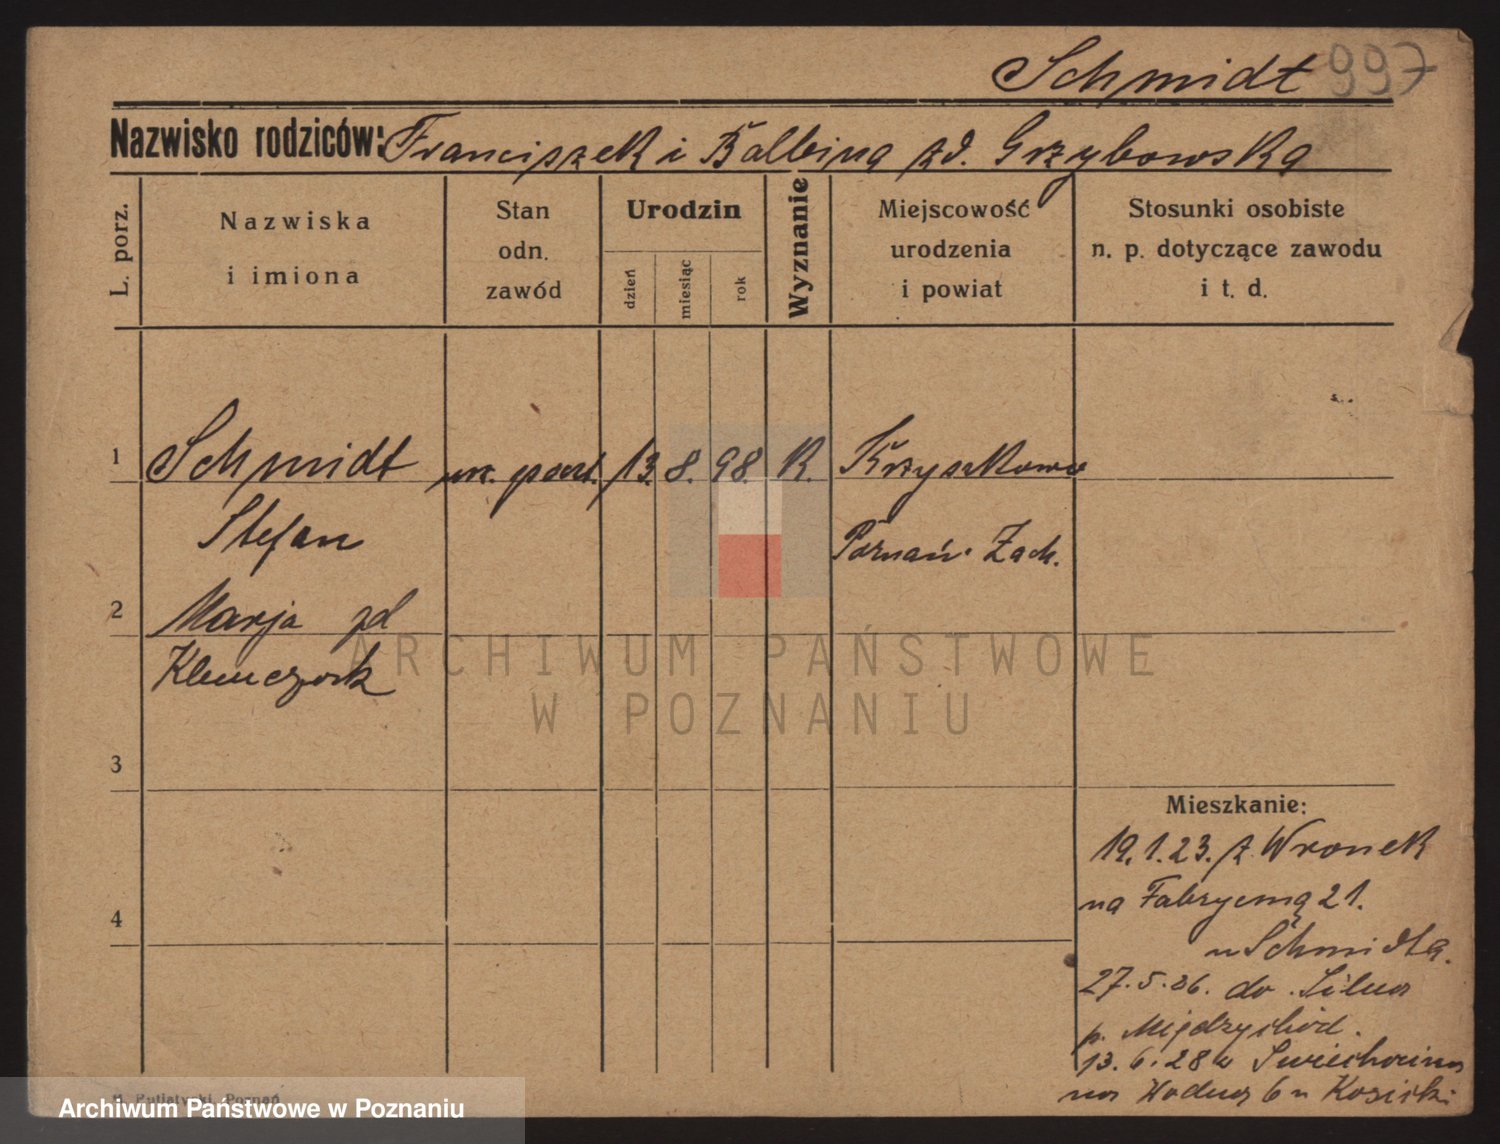 Schmidt 997
Nazwisko rodziców: Franciszek i Balbina zd. Grzybowska
L. porz.
Nazwiska
i imiona
Stan
odn.
zawód
Urodzin
dzień
miesiąc
rok
Wyznanie
Miejscowość
urodzenia
i powiat
Stosunki osobiste
n. p. dotyczące zawodu
i t. d.
1 Schmidt urz. poczt. 13. 8. 98. K. Krzyszkowo
Stefan Poznań. Zach.
2 Marja zd
3
4
Mieszkanie:
19.1.23. z Wronek
na Fabryczną 21.
u Schmidta.
27.5.26. do
p. Międzychód.
13.6.28 z
na Wodna 6 u
ARCHIWUM PAŃSTWOWE
W POZNANIU
Putiatycki, Poznań
Archiwum Państwowe w Poznaniu